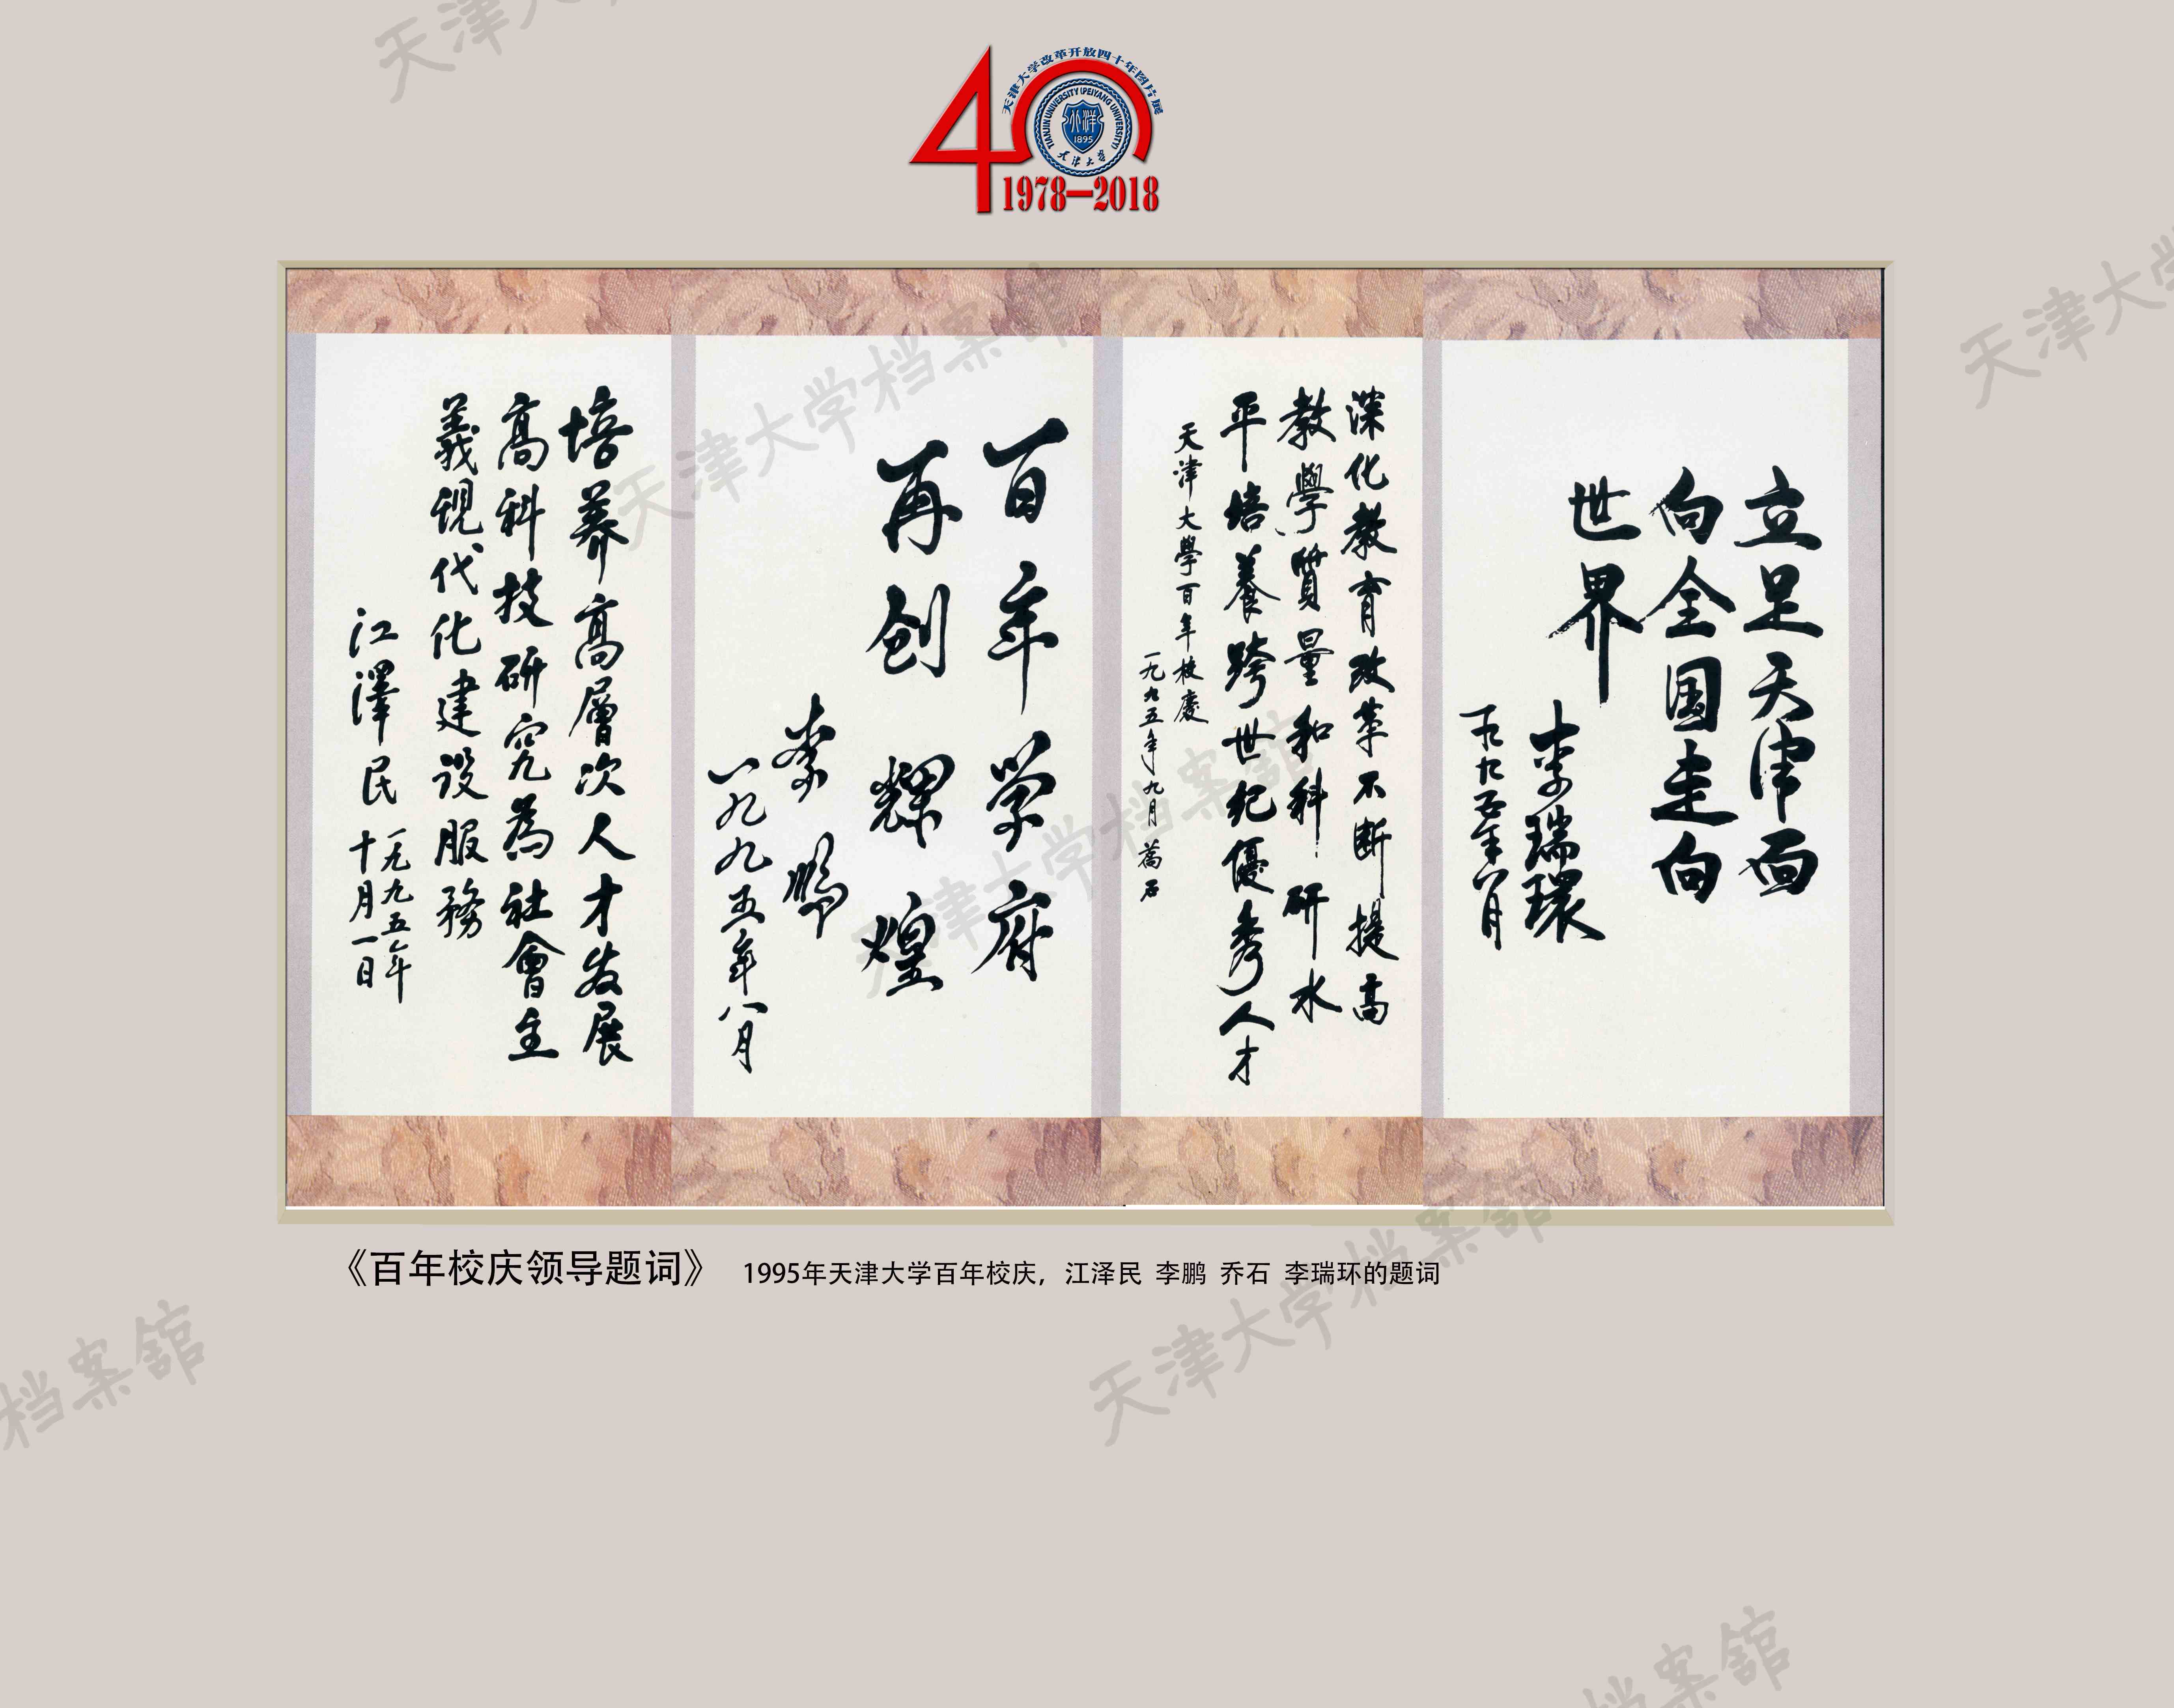 天津大学改革开放四十年图片展
TIANJIN UNIVERSITY (PEIYANG UNIVERSITY)
北洋
1895
天津大学
1978-2018
培养高層次人才发展
高科技研究為社會主
義现代化建设服務
江澤民
一九九五年
十月一日
百年学府
再创辉煌
李鹏
一九九五年八月
深化教育改革不断提高
教學質量和科研水
平培養跨世纪優秀人才
天津大學百年校慶
一九九五年九月 喬石
立足天津面
向全国走向
世界
李瑞環
一九九五年八月
《百年校庆领导题词》 1995年天津大学百年校庆，江泽民 李鹏 乔石 李瑞环的题词
天津大学档案館
天津大学档案館
天津大学档案館
天津大学
档案館
档案館
天津大